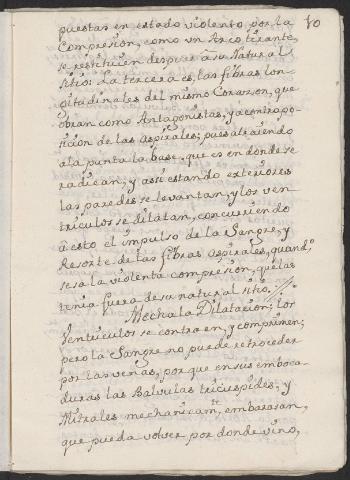 puestas en estado violento por la
Compresion, como vn Arco tirante,
se restituien despues à su Natural
sitio: La tercera es, las fibras lon-
gitudinales del mismo Corazon, que
obran como Antagonistas, y a contrapo-
sicion de las aspirales; pues atraiendo
a la punta la base, que es en donde se
radican, y assi estando exteriores
las paredes se levantan, y los ven-
triculos se dilatan, concurriendo
à esto el impulso de la Sangre, y
Resorte de las fibras aspirales, quando
sesa la violenta compresion, que las
tenia fuera de su natural sitio.
Mecha la Dilatacion; los
Ventriculos se contraen, y comprimen;
pero la Sangre no puede retroceder
por las venas, por que en sus emboca-
duras las Balvulas tricuspides, y
Mitrales mechanicamte. embarasan,
que pueda volver por donde vino,